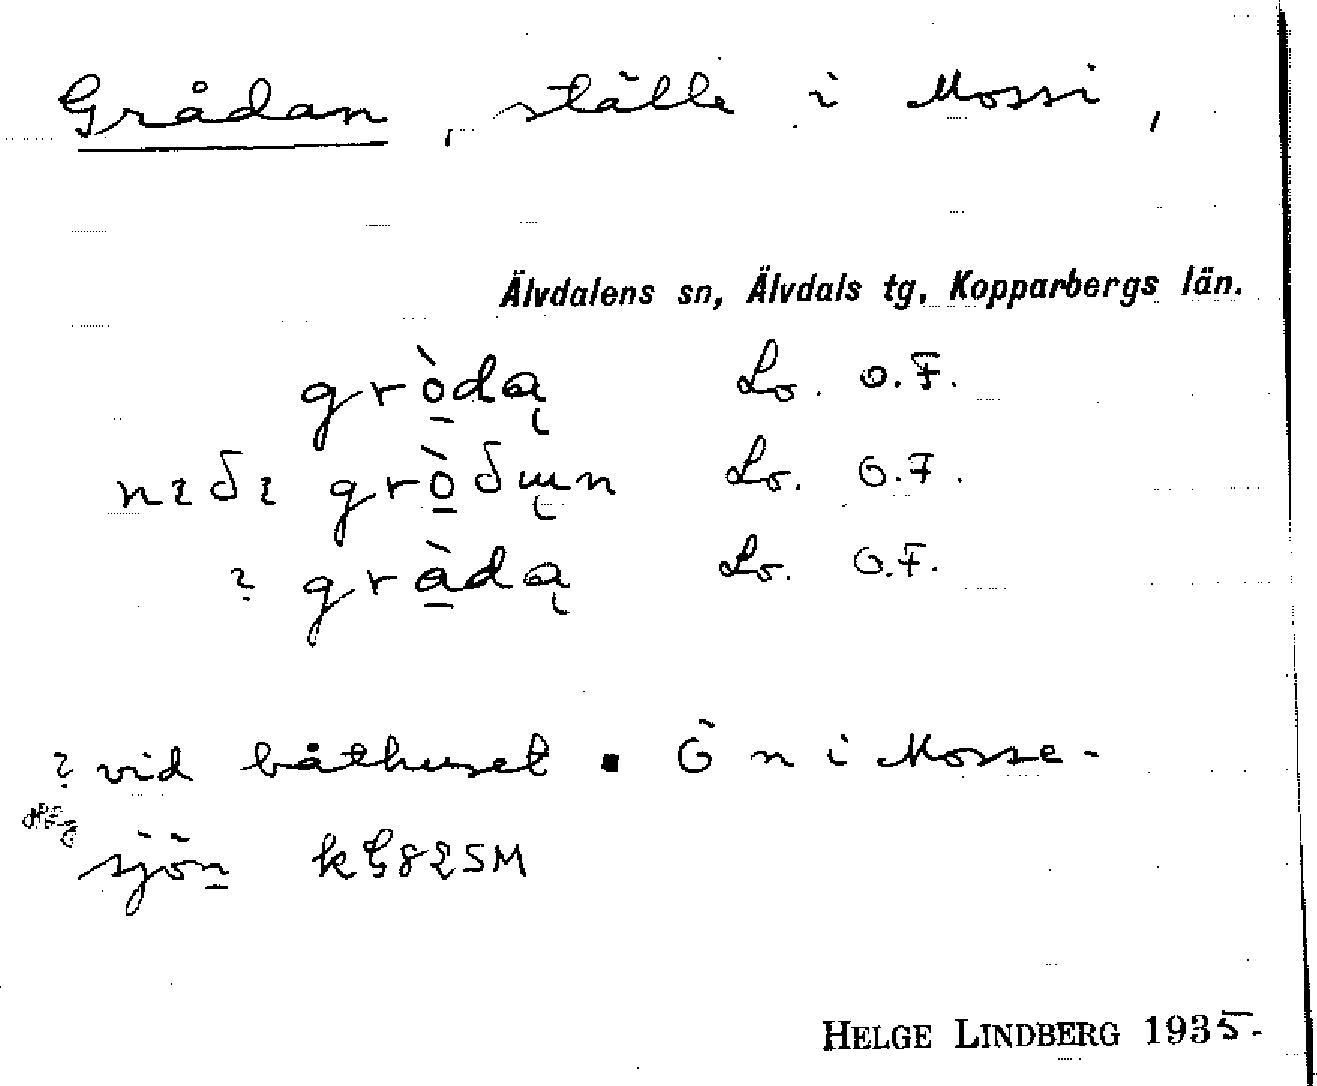 Grådan, ställe i Mossi,
Älvdalens sn, Älvdals tg, Kopparbergs län.
grò̱dą Lo. O.F.
grò̱ Lo. O.F.
? grà̱dą Lo. O.F.
? vid båthuset. Ö n i Mosse-
sjön
HELGE LINDBERG 1935.